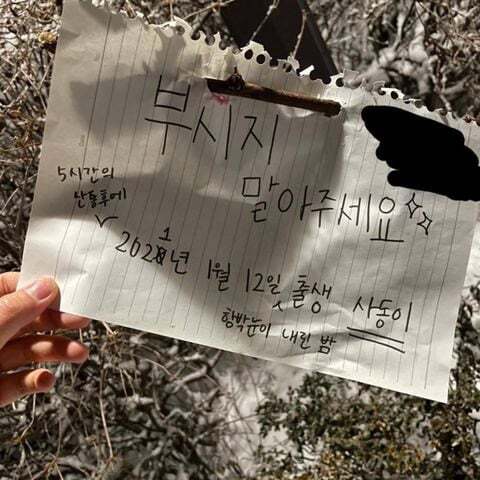 부시지
말아주세요
5시간의
산통후에
2021년 1월 12일 출생 사동이
함박눈이 내린 밤